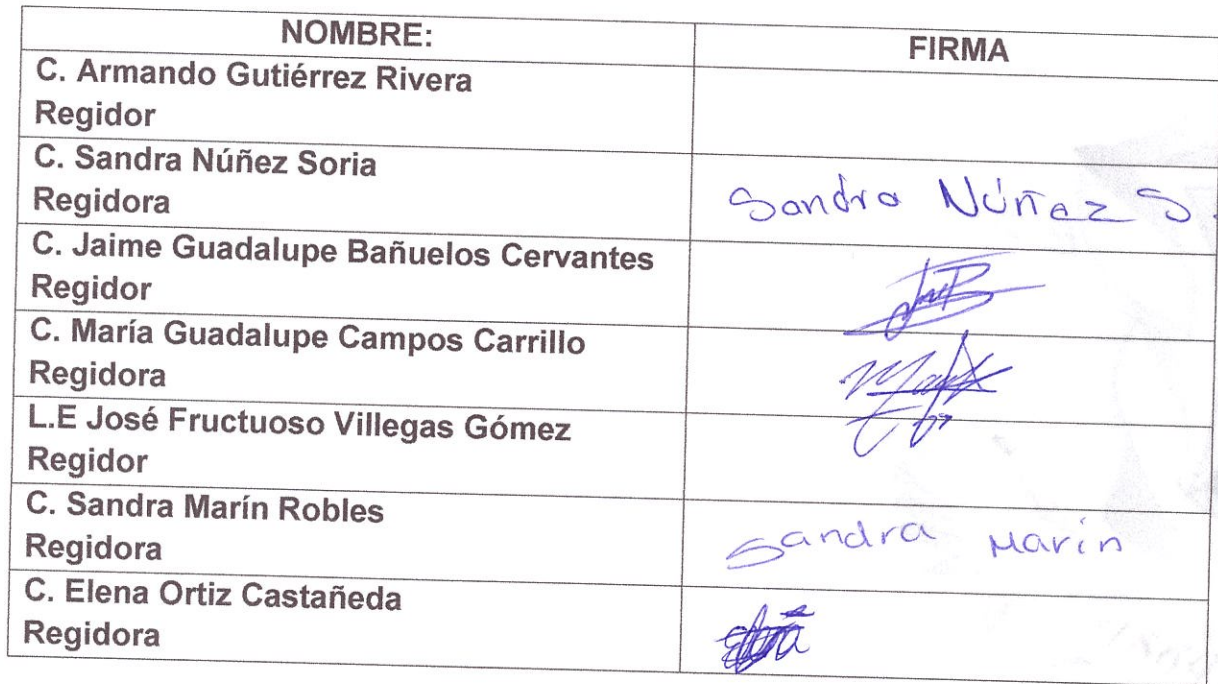 NOMBRE: FIRMA
C. Armando Gutiérrez Rivera
Regidor
C. Sandra Núñez Soria
Regidora
Sandra Núñez S.
C. Jaime Guadalupe Bañuelos Cervantes
Regidor
C. María Guadalupe Campos Carrillo
Regidora
L.E José Fructuoso Villegas Gómez
Regidor
C. Sandra Marín Robles
Regidora
Sandra Marín
C. Elena Ortiz Castañeda
Regidora